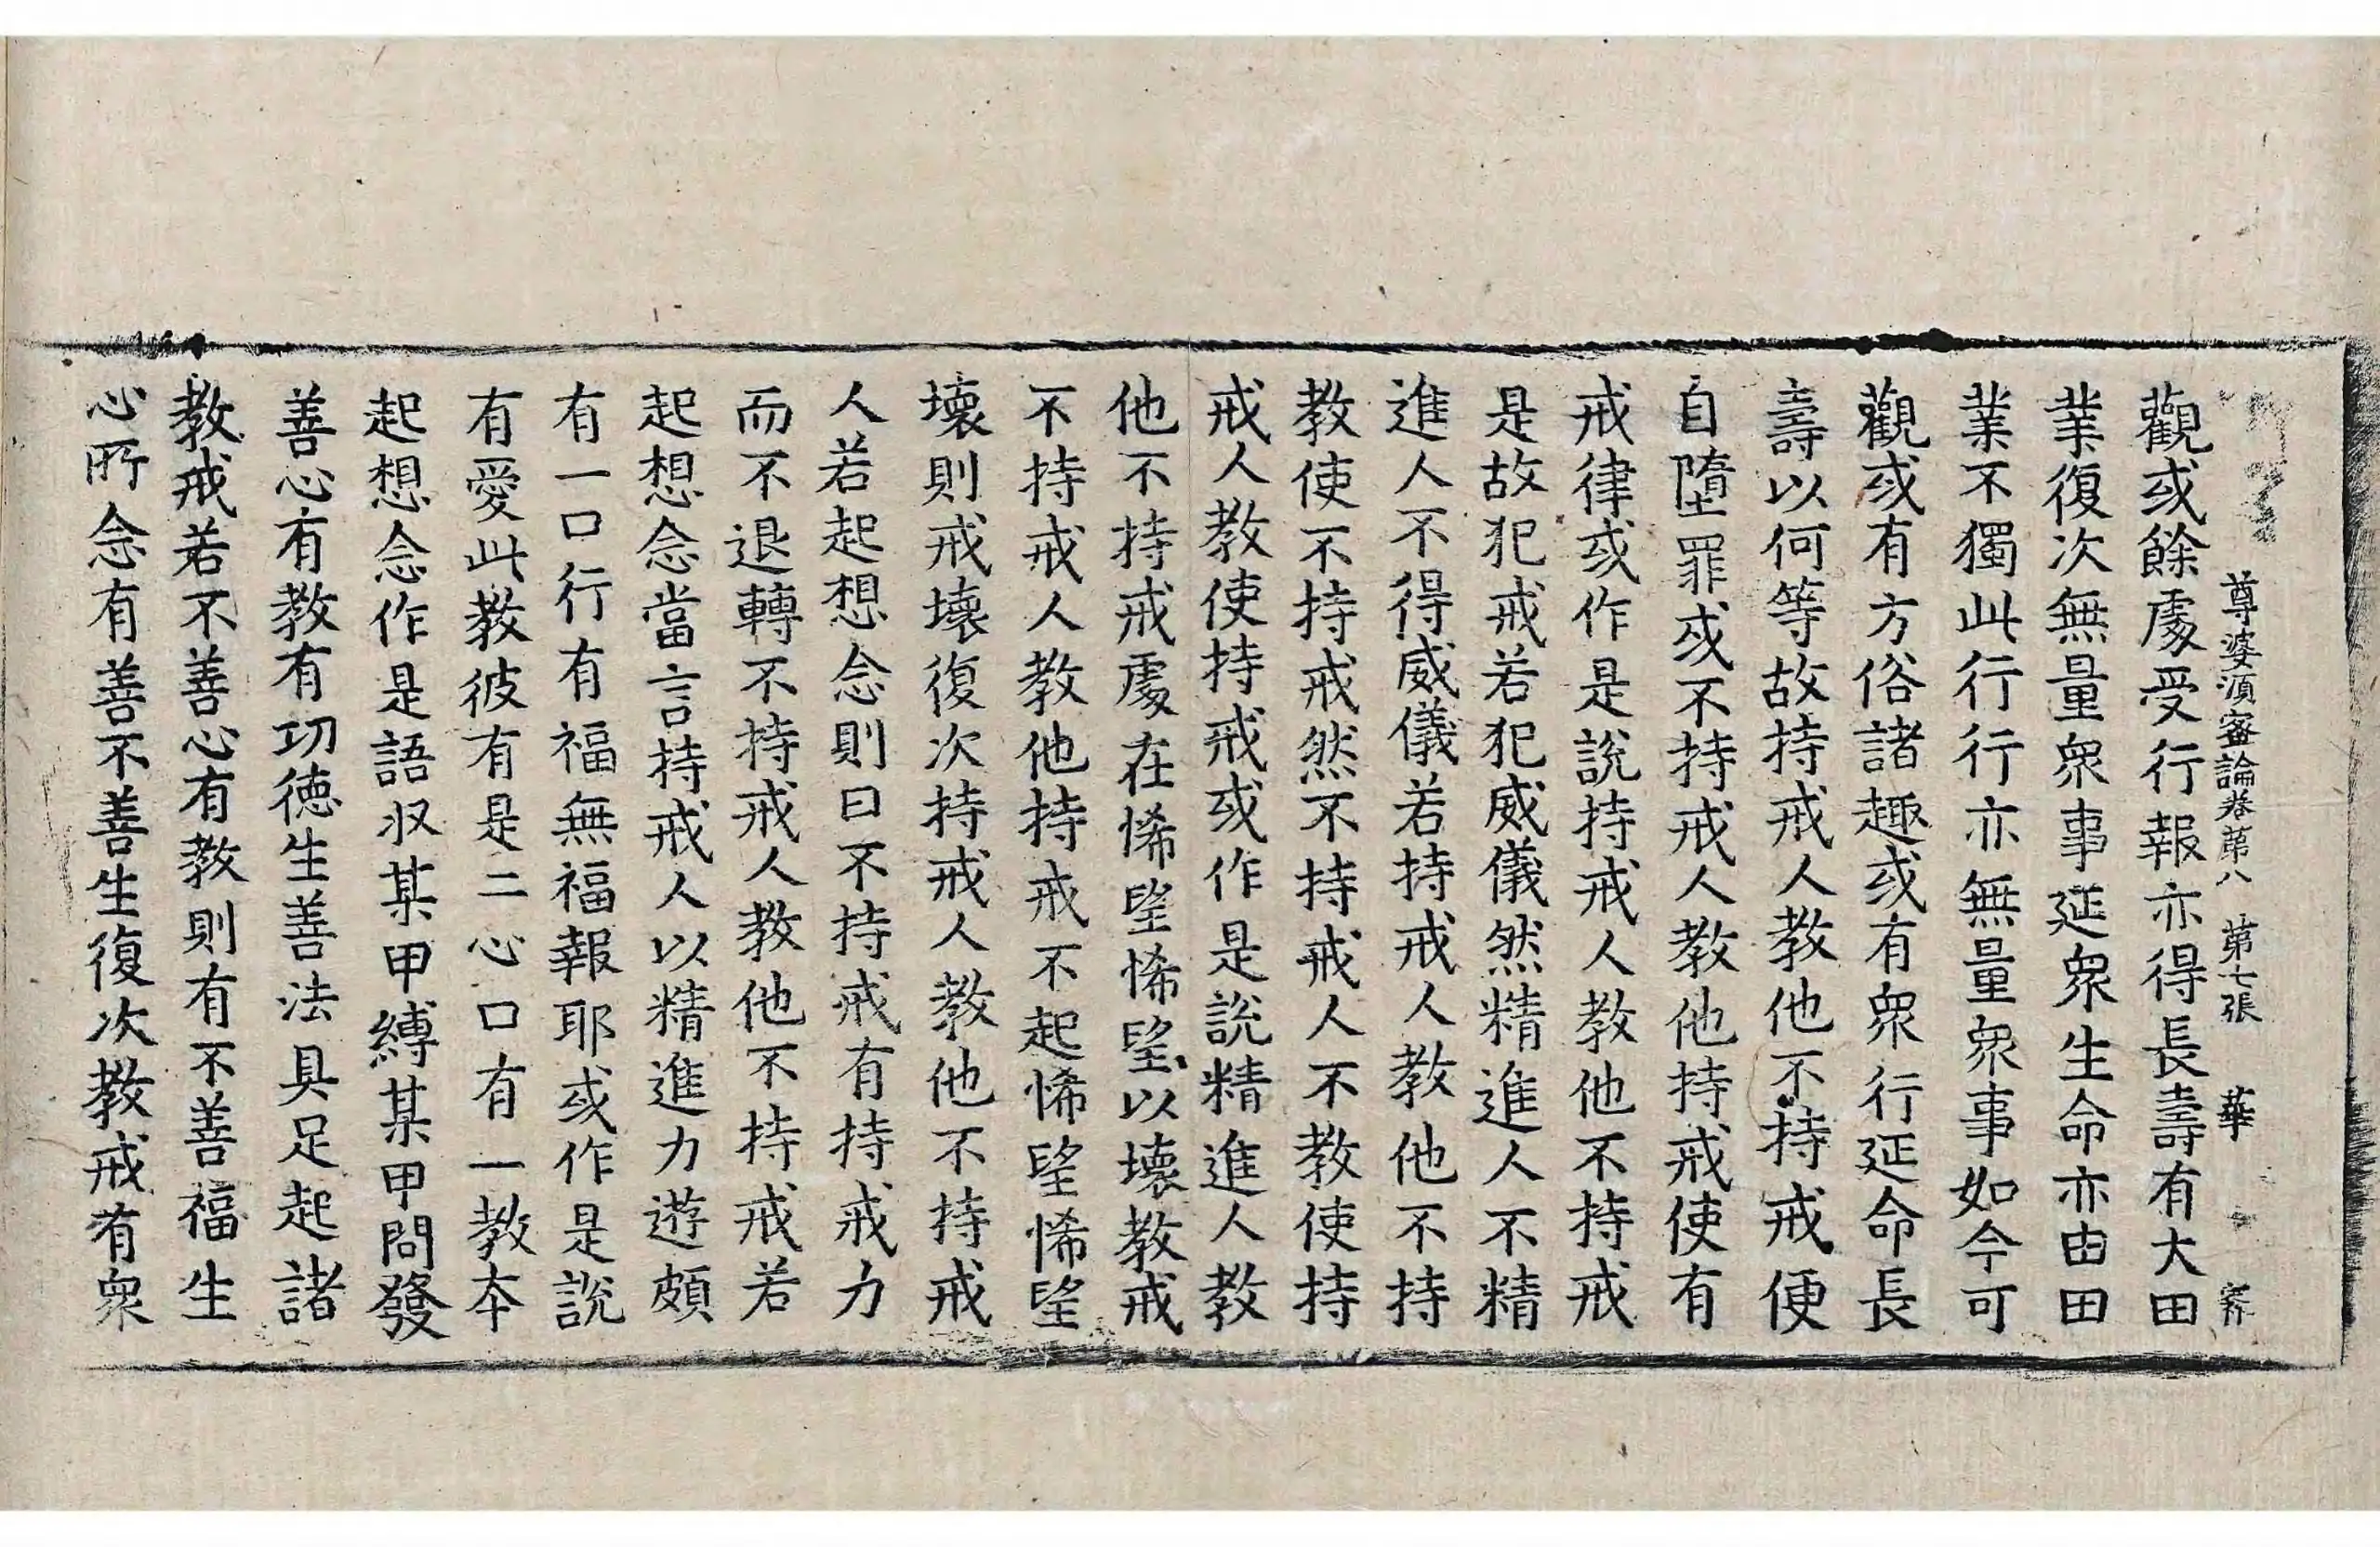 尊婆須蜜論卷第八 第七張 華
觀或餘處受行報亦得長壽有大田
業復次無量衆事延衆生命亦由田
業不獨此行行亦無量衆事如今可
觀或有方俗諸趣或有衆行延命長
壽以何等故持戒人教他不持戒便
自墮罪或不持戒人教他持戒使有
戒律或作是説持戒人教他不持戒
是故犯戒若犯威儀然精進人不精
進人不得威儀若持戒人教他不持
教使不持戒然不持戒人不教使持
戒人教使持戒或作是説精進人教
他不持戒處在悕望悕望以壞教戒
不持戒人教他持戒不起悕望悕望
壞則戒壞復次持戒人教他不持戒
人若起想念則曰不持戒有持戒力
而不退轉不持戒人教他不持戒若
起想念當言持戒人以精進力遊頗
有一口行有福無福報耶或作是説
有愛此教彼有是二心口有一教本
起想念作是語収某甲縛某甲問發
善心有教有功德生善法具足起諸
教戒若不善心有教則有不善福生
心所念有善不善生復次教戒有衆